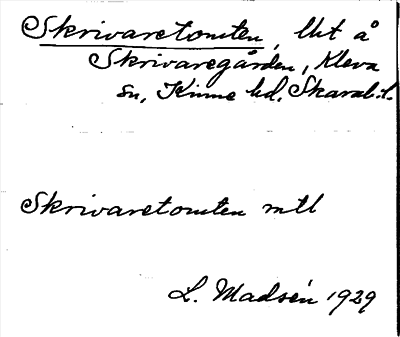 Skrivaretomten, lht å
Skrivaregården, Kleva
sn, Kinne hd. Skarab.l.
Skrivaretomten mtl
L. Madsén 1929